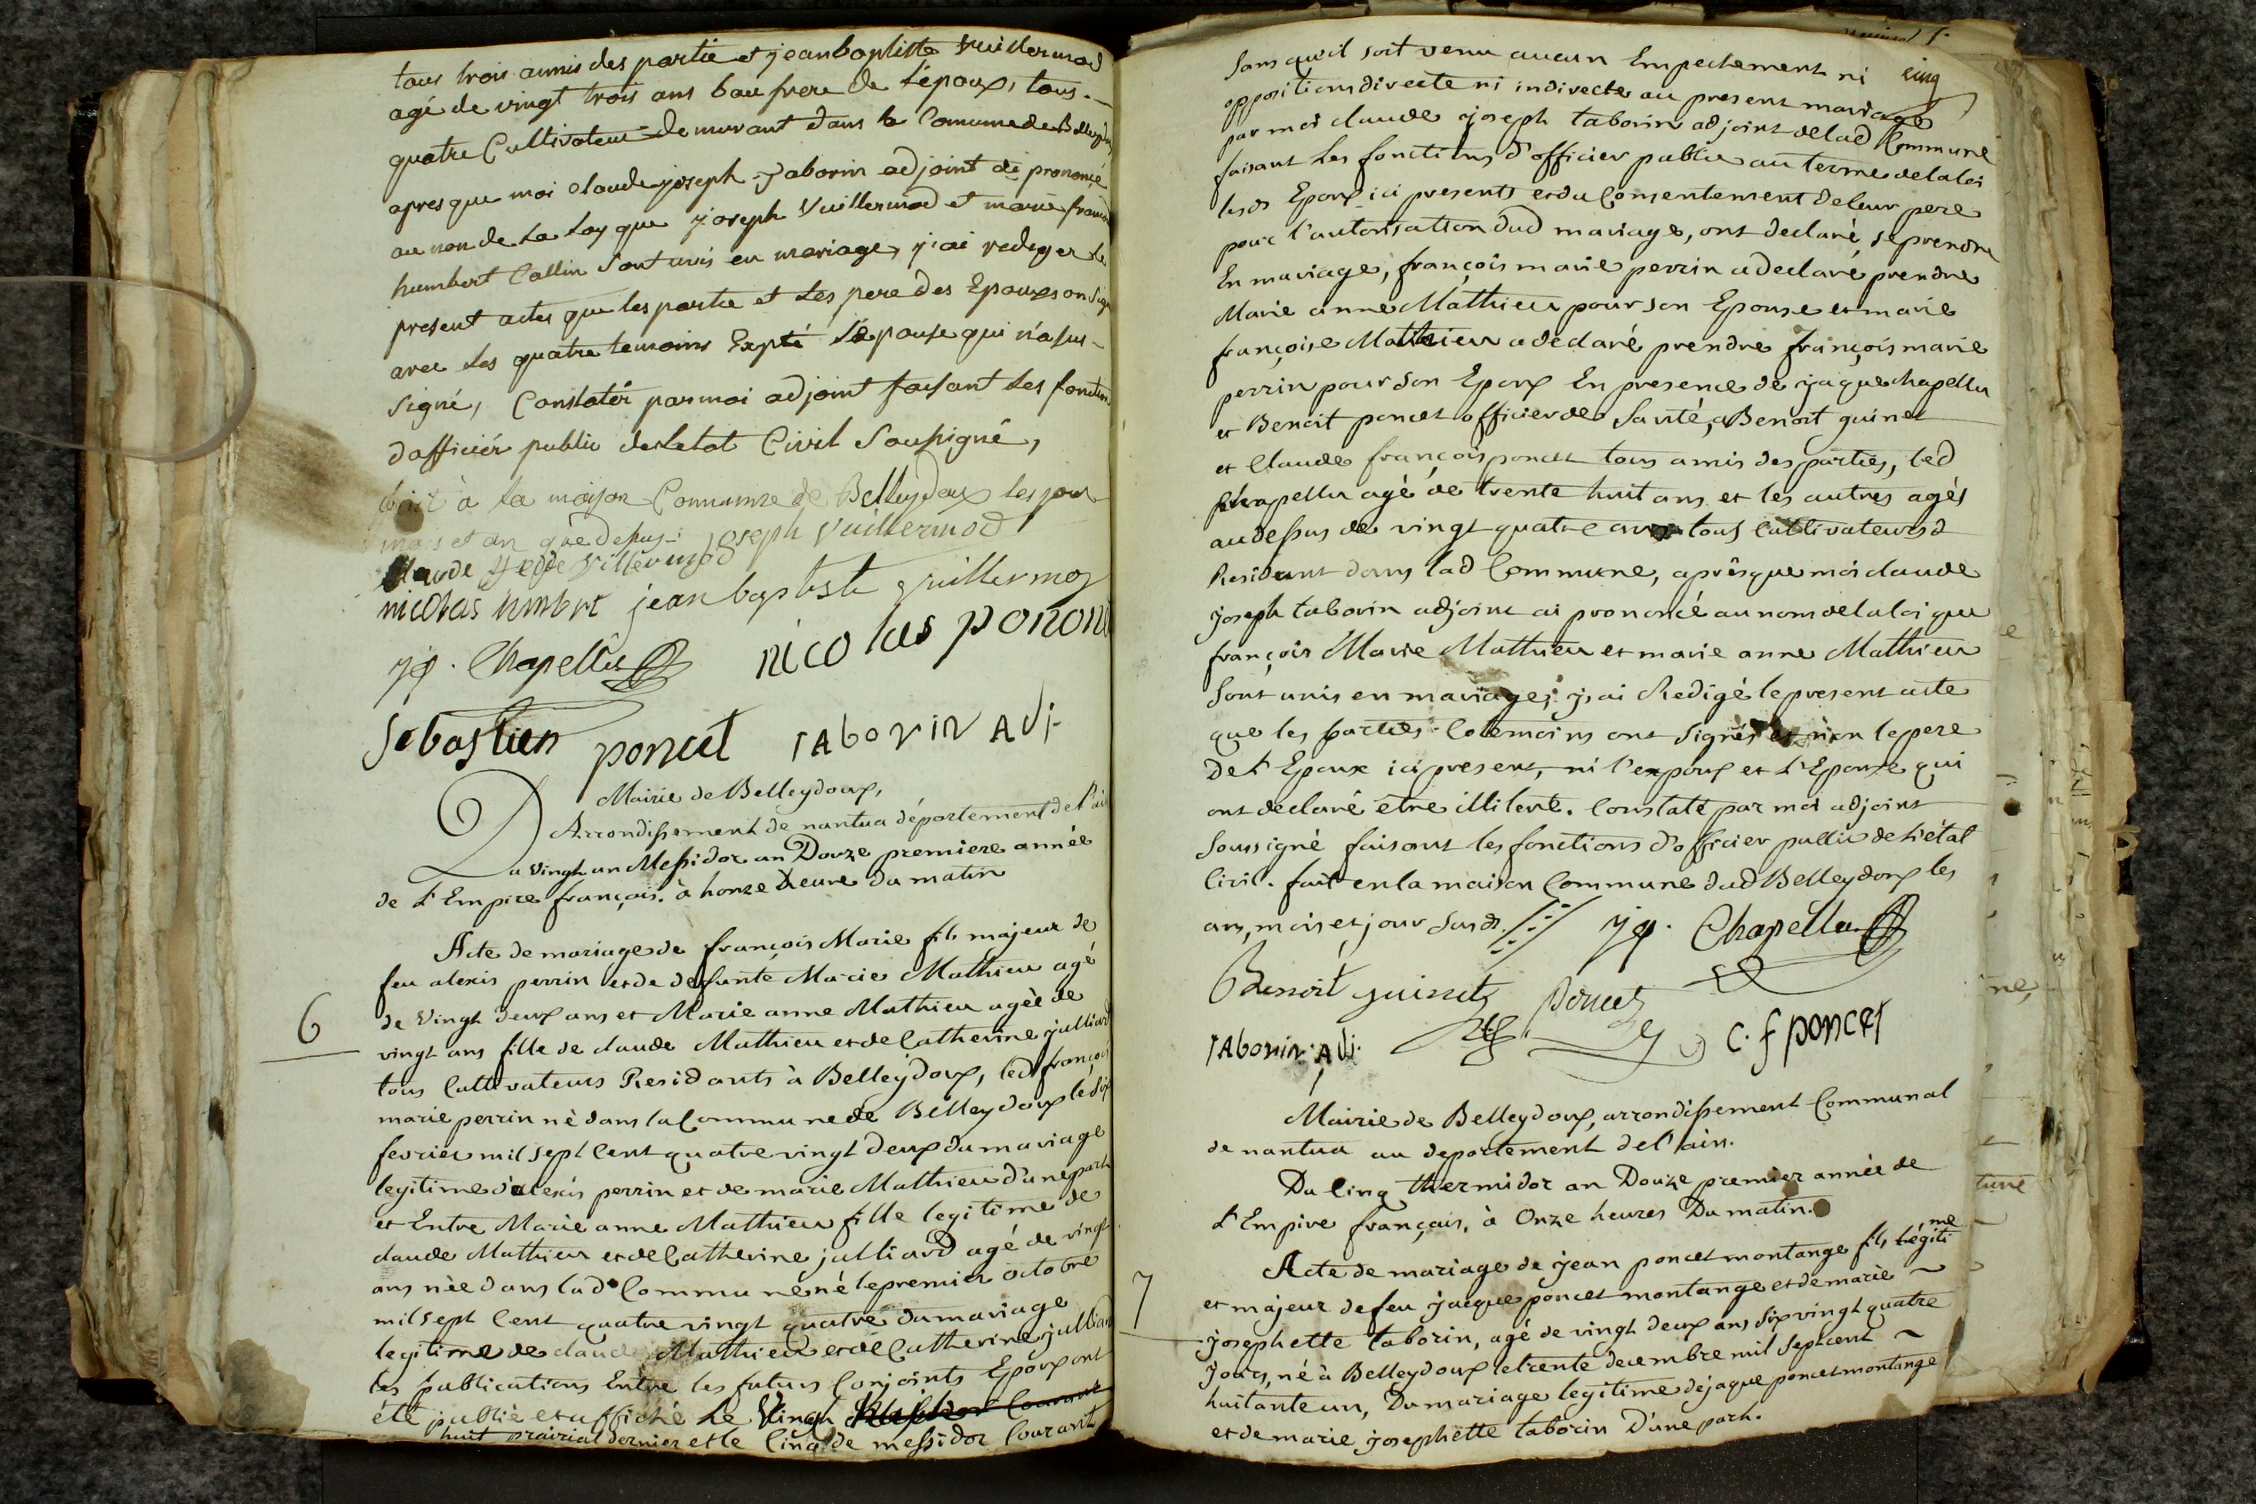 tous trois amis des partie et jean baptiste Vuillermod
agé de vingt trois ans bau frere de l'époux, tous
quatre Cultivateur demurant dans la Comune de Belleydoux
apres que moi claude joseph Taborin adjoint ai prononcé
au non de la Loy que joseph Vuillermod et marie francoise
humbert Collin Sont unis en mariage, j'ai rediger le
present actes que les partie et les pere des Epouxs on Signé
avec les quatre temoins Expté L'epouse qui n'a sus
signé, Constatér par moi adjoint faisant les fonction
d'afficiér public de letat Civil Sousigné,
fait à la maison Commune de Belleydoux les jour
mois et an que desus joseph Vuillermod
Claude Vuillermod
nicolas humbrt jean baptiste Vuillermoz
jq. Chapellu nicolas ponont
Sébastien poncet TAborin Adj.
Mairie de Belleydoux,
Arrondissement de nantua département de l'ain
Du vingt un Messidor an Douze premiere année
de L'Empire français. à honze heure du matin
Acte de mariage de françois Marie fils majeur de
feu alexis perrin et de defunte Marie Mathieu agé
6
de vingt deux ans et Marie anne Mathieu agée de
vingt ans fille de claude Mathieu et de Catherine julliard
tous Cultivateurs Residants à Belleydoux, led françois
marie perrin né dans la Commune de Belleydoux le Six
fevrier mil sept Cent quatre vingt deux du mariage
legitime d'alexis perrin et de marie Mathieu d'une part
et Entre Marie anne Mathieu fille legitime de
claude Mathieu et de Catherine julliard agé de vingt
ans née dans lad Commune né le premier octobre
mil sept Cent quatre vingt quatre du mariage
legitime de claude Mathieu et de Catherine julliard
les publications Entre les futurs Conjoints Epoux ont
été publié et affiché le Vingt Messidor Courant
huit prairial dernier et le Cinq de messidor Courant
cinq
Sans qu'il soit venu aucun Empechement ni
oppositions directe ni indirecte au present mariage
par moi claude joseph taborin adjoint de lad Commune
faisant les fonctions d'officier public au terme de la loi
lesds Epoux ici presents et du Consentement de leur pere
pour l'autorisation dud mariage, ont declaré se prendre
En mariage, françois marie perrin a declaré prendre
Marie anne Mathieu pour son Epouse et marie
françoise Mathieu a declaré prendre françois marie
perrin pour son Epoux En presence de jaque chapellu
et Benoit poncet officier de Santé, Benoit guinet
et Claude françois poncet tous amis des parties, led
Chapellu agé de trente huit ans et les autres agés
au dessus de vingt quatre ans tous Cultivateurs
Residant dans lad Commune, après que moi claude
joseph taborin adjoint ai prononcé au nom de la loi que
françois Marie Mathieu et marie anne Mathieu
Sont unis en mariage, j'ai Redigé le present acte
que les parties temoins ont signés et non le pere
de L'Epoux ici present, ni l'expoux et L'Epouze qui
ont declaré etre illiteré. Constaté par moi adjoint
Soussigné faisant les fonctions d'officier public de L'état
Civil. fait en la maison Commune dud Belleydoux les
an, mois et jour Susds. jq. Chapellu
Benoit guinet Poncet
TAborin Adj. C. f poncet
Mairie de Belleydoux, arrondissement Communal
de nantua au departement de l'ain.
Du Cinq thermidor an Douze premier année de
L'Empire français, à Onze heures Du matin.
7
Acte de mariage de jean poncet montange fils légitime
et majeur de feu jacque poncet montange et de marie
josephette taborin, agé de vingt deux ans six vingt quatre
jours, né à Belleydoux le trente decembre mil sept cent
huitante un, Du mariage legitime de jaque poncet montange
et de marie josephette taborin D'une part.